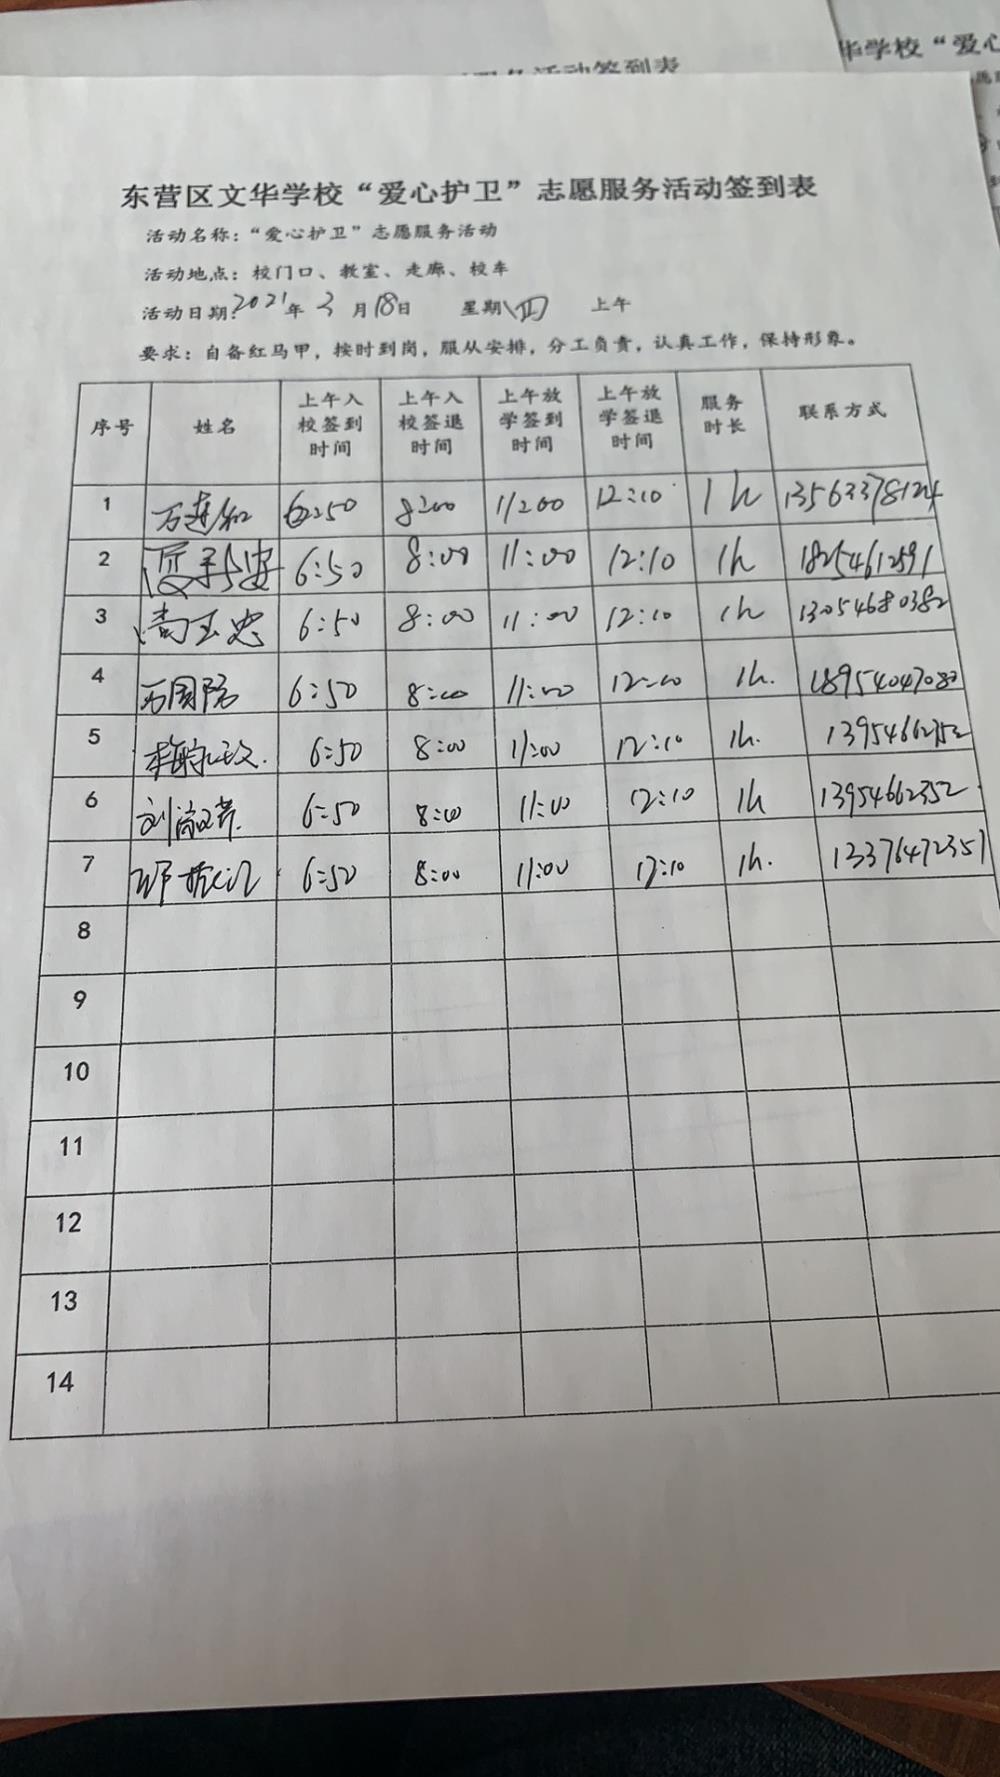 服务活动签到表
华学校“爱心
东营区文华学校“爱心护卫”志愿服务活动签到表
活动名称：“爱心护卫”志愿服务活动
活动地点：校门口、教室、走廊、校车
活动日期：2021年 3 月18日 星期四 上午
要求：自备红马甲，按时到岗，服从安排，分工负责，认真工作，保持形象。
序号 姓名 上午入校签到时间 上午入校签退时间 上午放学签到时间 上午放学签退时间 服务时长 联系方式
1 6:50 8:00 11:00 12:10 1h 13563378124
2 6:50 8:00 11:00 12:10 1h 18254612591
3 尚玉忠 6:50 8:00 11:00 12:10 1h 13054680382
4 6:50 8:00 11:00 1h. 18954047080
5 6:50 8:00 11:00 12:10 1h.
6 6:50 8:00 11:00 12:10 1h 13954662352
7 6:50 8:00 11:00 12:10 1h. 13376472357
8
9
10
11
12
13
14